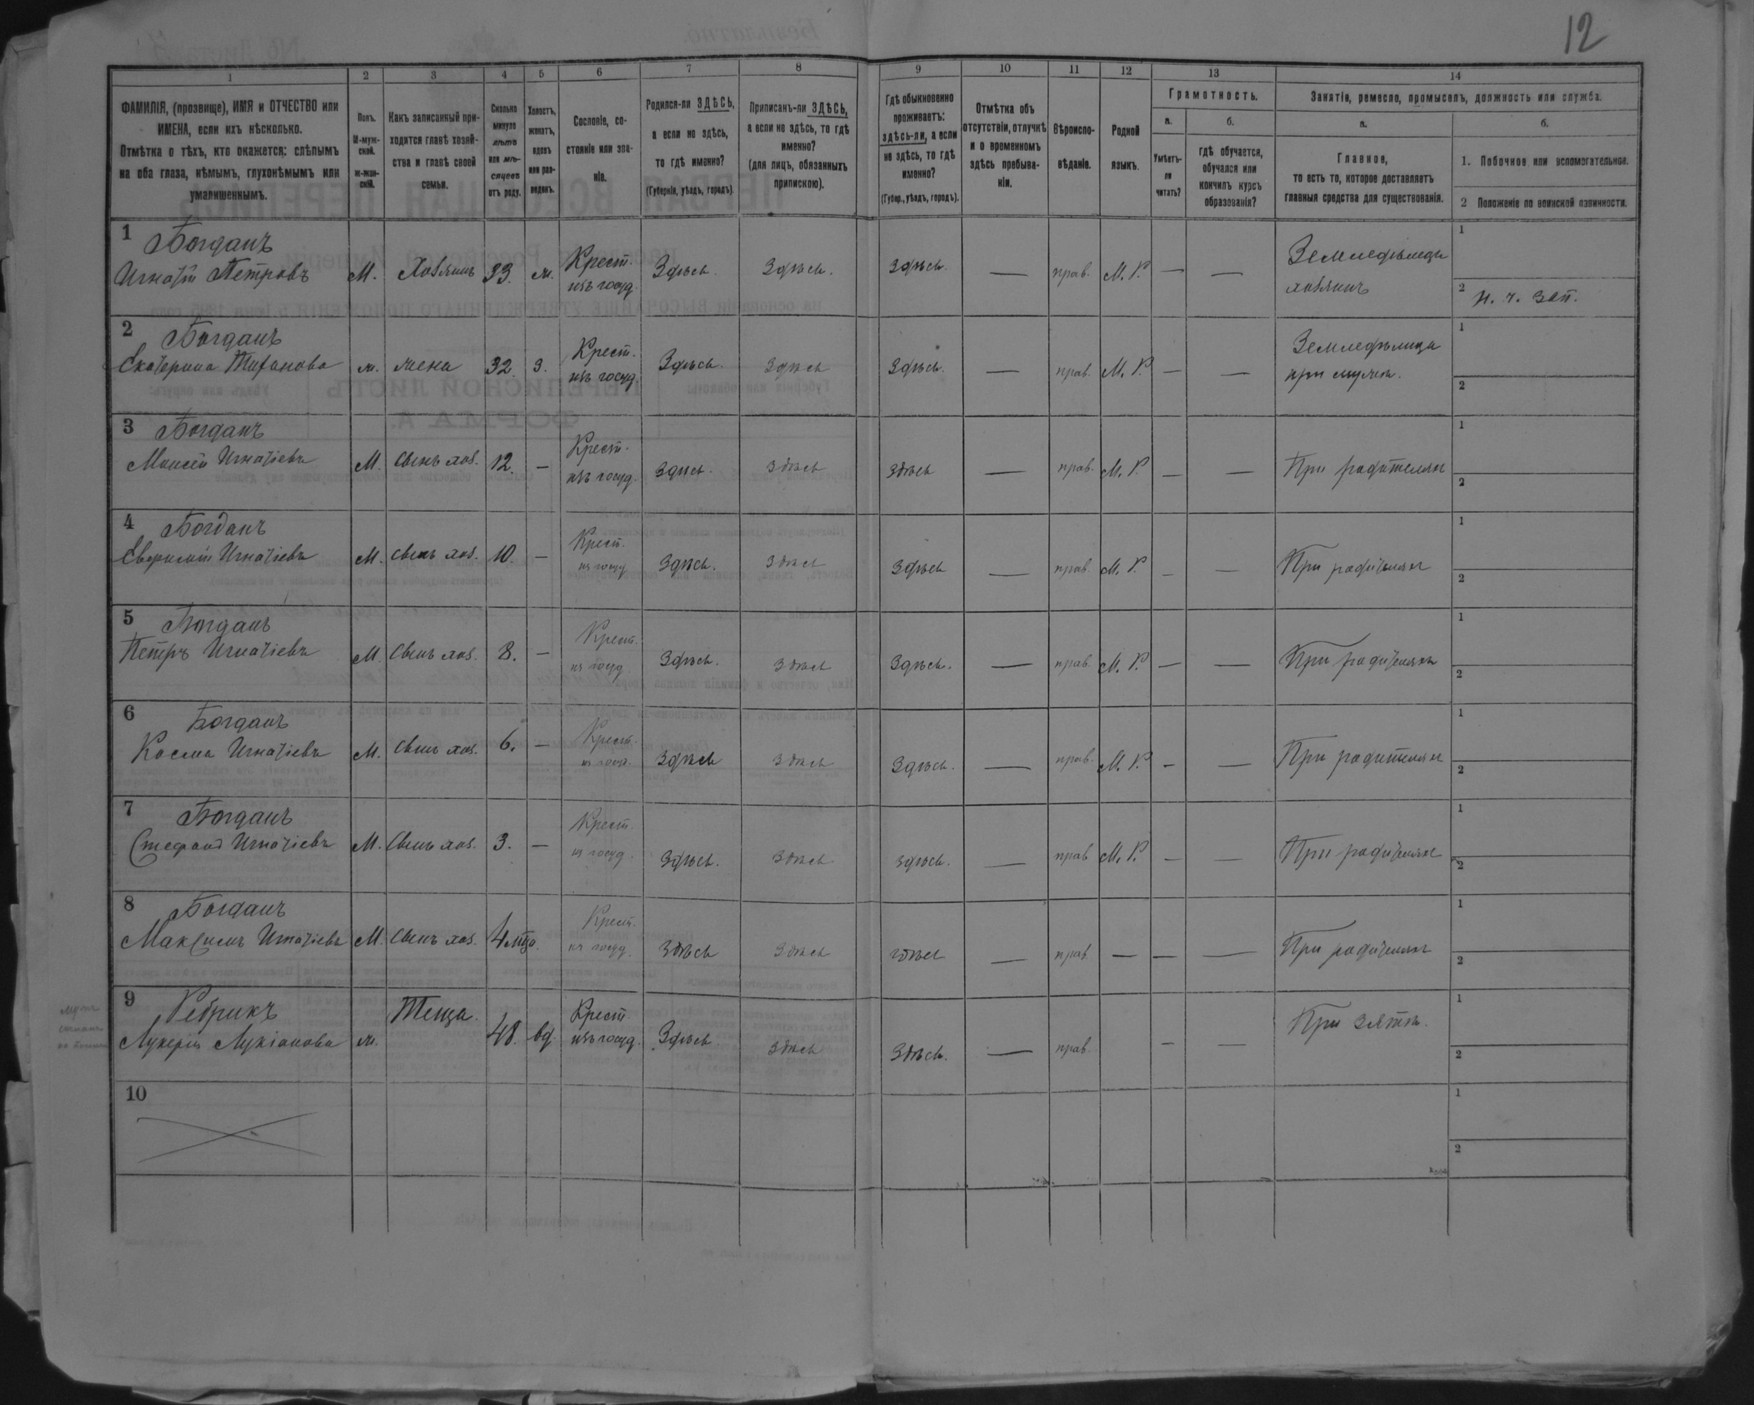 12
1 2 3 4 5 6 7 8 9 10 11 12 13 14
ФАМИЛІЯ, (прозвище), ИМЯ и ОТЧЕСТВО или
ИМЕНА, если ихъ нѣсколько.
Отмѣтка о тѣхъ, кто окажется: слѣпымъ
на оба глаза, нѣмымъ, глухонѣмымъ или
умалишеннымъ.
Полъ.
М-муж-
ской.
ж-жен-
скій.
Какъ записанный при-
ходится главѣ хозяй-
ства и главѣ своей
семьи.
Сколько
минуло
лѣтъ
или мѣ-
сяцевъ
отъ роду.
Холостъ,
женатъ,
вдовъ
или раз-
веденъ.
Сословіе, со-
стояніе или зва-
ніе.
Родился-ли ЗДѢСЬ,
а если не здѣсь,
то гдѣ именно?
(Губернія, уѣздъ, городъ).
Приписанъ-ли ЗДѢСЬ,
а если не здѣсь, то гдѣ
именно?
(для лицъ, обязанныхъ
припискою).
Гдѣ обыкновенно
проживаетъ:
здѣсь-ли, а если
не здѣсь, то гдѣ
именно?
(Губер., уѣздъ, городъ).
Отмѣтка объ
отсутствіи, отлучкѣ
и о временномъ
здѣсь пребыва-
ніи.
Вѣроиспо-
вѣданіе.
Родной
языкъ.
Грамотность.
а.
Умѣетъ-
ли
читать?
б.
Гдѣ обучается,
обучался или
кончилъ курсъ
образованія?
Занятіе, ремесло, промыселъ, должность или служба.
а.
Главное,
то есть то, которое доставляетъ
главныя средства для существованія.
б.
1. Побочное или вспомогательное.
2 Положеніе по воинской повинности.
1 Богданъ
Игнатій Петровъ М. Хозяинъ 33. ж. Крест. изъ госуд. Здѣсь. Здѣсь. Здѣсь. — прав. М. Р. — — Земледѣлецъ
хозяинъ
1
2 н. ч. зап.
2 Богданъ
Екатерина ж. жена 32. З. Крест. изъ госуд. Здѣсь. Здѣсь Здѣсь. — прав. М. Р. — — Земледѣлица
при мужѣ.
1
2
3 Богданъ
Моисей Игнатіевъ М. Сынъ хоз. 12. — Крест. изъ госуд. Здѣсь. Здѣсь Здѣсь — прав. М. Р. — — При родителяхъ
1
2
4 Богданъ
Игнатіевъ М. Сынъ хоз. 10. — Крест. из госуд Здѣсь. Здѣсь Здѣсь — прав. М. Р. — — При родителяхъ
1
2
5 Богданъ
Петръ Игнатіевъ М. Сынъ хоз. 8. — Крест. из госуд Здѣсь. Здѣсь Здѣсь. — прав. М. Р. — — При родителяхъ
1
2
6 Богданъ
Косма Игнатіевъ М. Сынъ хоз. 6. — Крест. из госуд. Здѣсь Здѣсь Здѣсь. — прав. М. Р. — — При родителяхъ
1
2
7 Богданъ
Стефанъ Игнатіевъ М. Сынъ хоз. 3. — Крест. из госуд. Здѣсь. Здѣсь Здѣсь. — прав М. Р. — — При родителяхъ
1
2
8 Богданъ
Максимъ Игнатіевъ М. Сынъ хоз. 4 мца. Крест. из госуд. Здѣсь Здѣсь Здѣсь — прав — — — При родителяхъ
1
2
9 Ребрикъ
Лукерія Лукіанова ж. Теща. 48. вд. Крест изъ госуд. Здѣсь Здѣсь Здѣсь. — прав. — — При зятѣ.
1
2
10
1
2